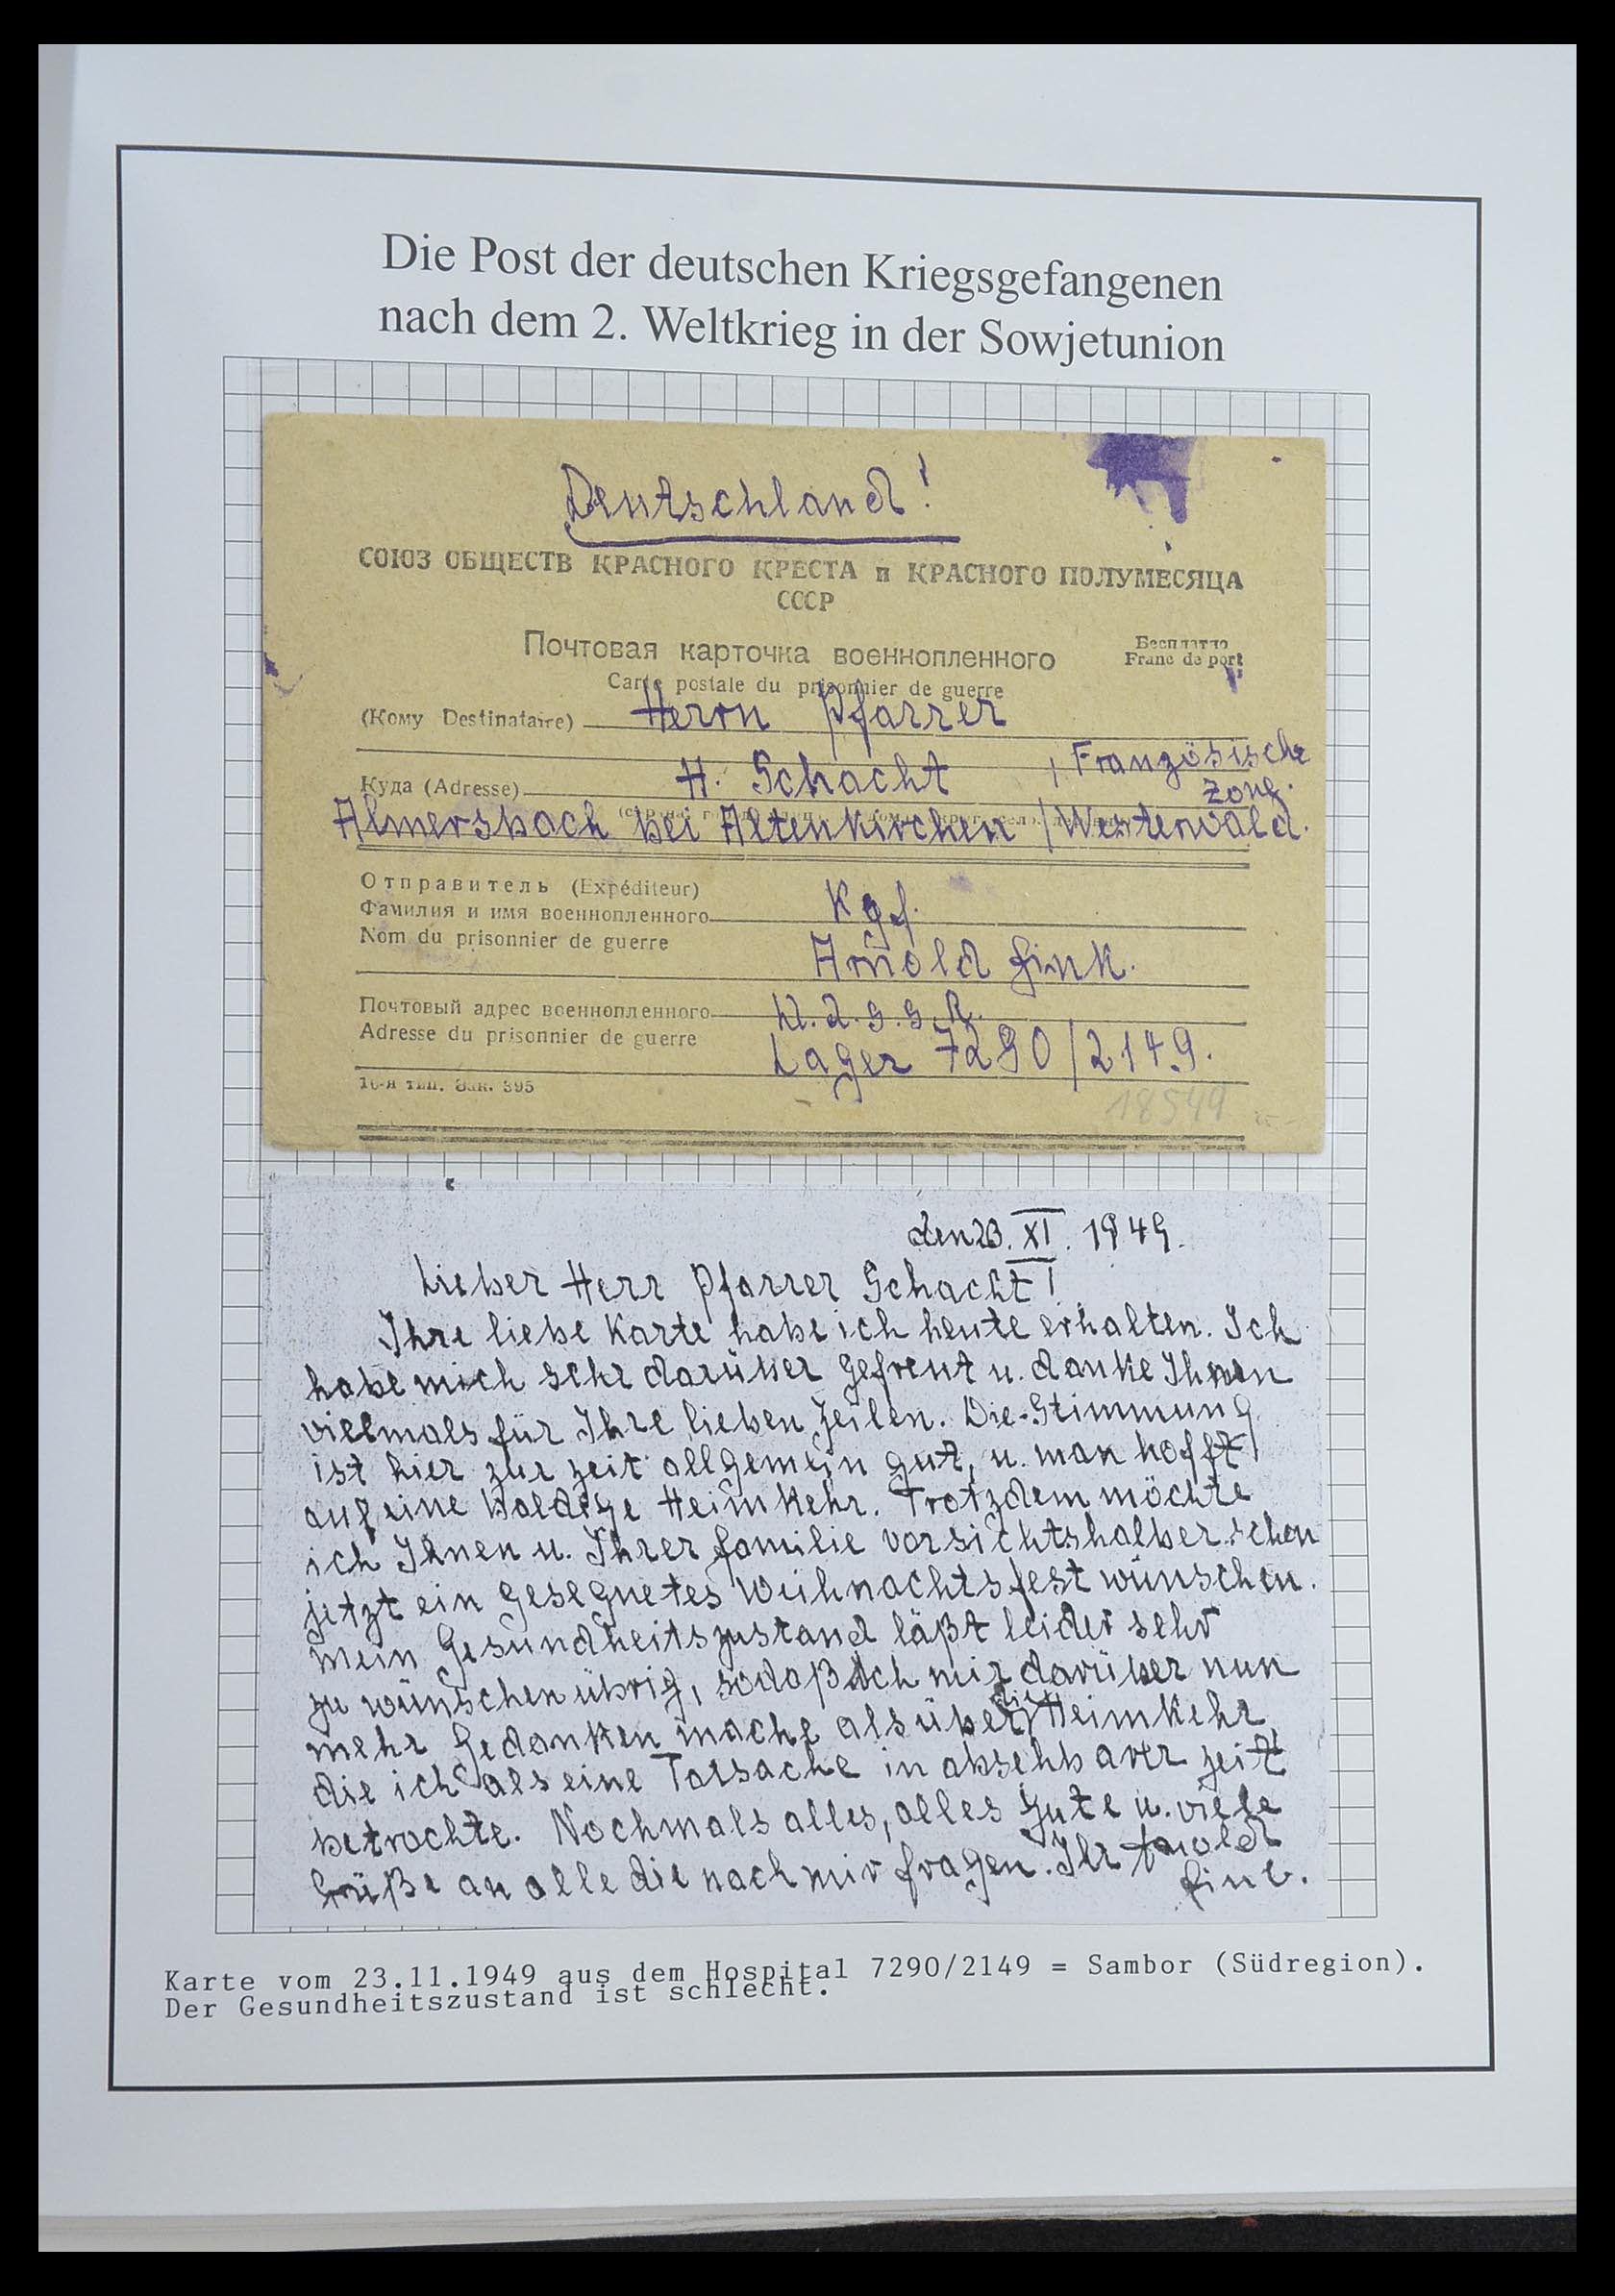 Die Post der deutschen Kriegsgefangenen
nach dem 2. Weltkrieg in der Sowjetunion
Deutschland!
СОЮЗ ОБЩЕСТВ КРАСНОГО КРЕСТА и КРАСНОГО ПОЛУМЕСЯЦА
СССР
Почтовая карточка военнопленного
Бесплатно
Franc de port
Carte postale du prisonnier de guerre
(Кому Destinataire) Herrn Pfarrer
Куда (Adresse) H. Schacht
, Französische
Zone.
Almersbach bei Altenkirchen / Westerwald.
Отправитель (Expéditeur)
Фамилия и имя военнопленного Kgf.
Nom du prisonnier de guerre
Arnold Fink.
Почтовый адрес военнопленного U.d.S.S.R.
Adresse du prisonnier de guerre Lager 7290/2149.
16-я тип. Зак. 395
18549
den 23. XI. 1949.
Lieber Herr Pfarrer Schacht!
Ihre liebe Karte habe ich heute erhalten. Ich
habe mich sehr darüber gefreut u. danke Ihnen
vielmals für Ihre lieben Zeilen. Die Stimmung
ist hier zur Zeit allgemein gut, u. man hofft
auf eine baldige Heimkehr. Trotzdem möchte
ich Ihnen u. Ihrer Familie vorsichtshalber schon
jetzt ein gesegnetes Weihnachtsfest wünschen.
Mein Gesundheitszustand läßt leider sehr
zu wünschen übrig, sodaß ich mir darüber nun
mehr Gedanken mache als über die Heimkehr,
die ich als eine Tatsache in absehbarer Zeit
betrachte. Nochmals alles, alles Gute u. viele
Grüße an alle die nach mir fragen. Ihr Arnold
Fink.
Karte vom 23.11.1949 aus dem Hospital 7290/2149 = Sambor (Südregion).
Der Gesundheitszustand ist schlecht.